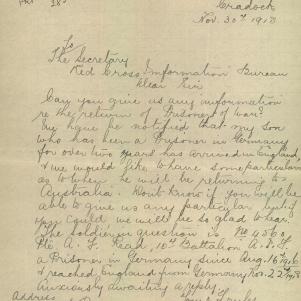 Cradock
Nov. 30th 1918
To
The Secretary
Red Cross Information Bureau
Dear Sir
Can you give us any information
re the return of Prisoners of War.
We have be notified that my son
who has been a Prisoner in Germany
for over two years has arrived in England,
& we would like to have some particulars
as to when he will be returning to
Australia. Dont know if you will be
able to give us any particulars but if
you could we will be so glad to hear
The soldier in question is No 4560
Pte. A. F. Read, 10th Battalion A.I.F.
a Prisoner in Germany since Aug 16th 1916
& reached England from Germany Nov. 22nd 1918
Anxiously awaiting a reply
Address